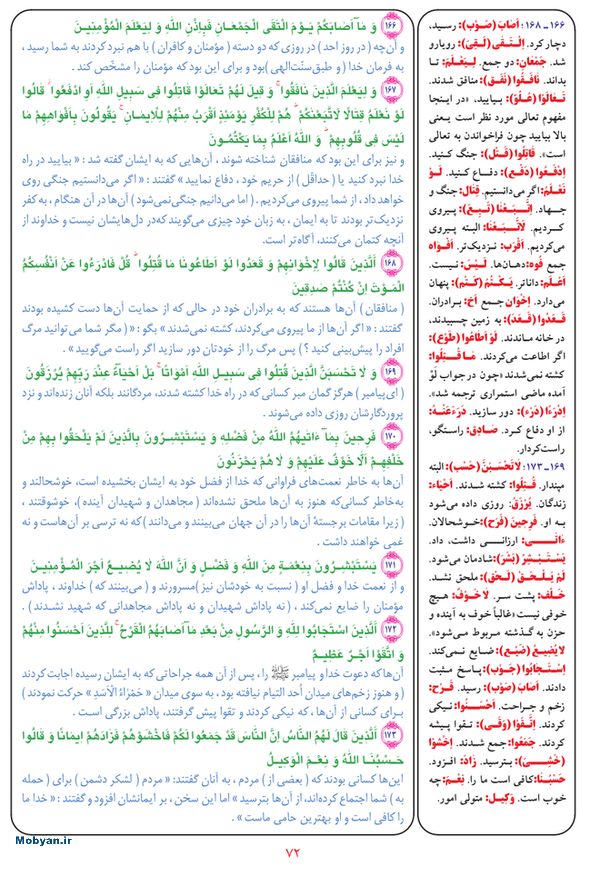 ۱۶۶ وَ مَآ اَصَابَكُمْ يَوْمَ الْتَقَى الْجَمْعَانِ فَبِاِذْنِ اللهِ وَ لِيَعْلَمَ الْمُؤْمِنِينَ
و آن‌چه ( در روز احد ) در روزی که دو دسته ( مؤمنان و کافران ) با هم نبرد کردند به شما رسید ،
به فرمان خدا ( و طبق‌سنّت‌الهی )بود و برای این بود که مؤمنان را مشخّص کند .
۱۶۷ وَ لِيَعْلَمَ الَّذِينَ نَافَقُوا ۚ وَ قِيلَ لَهُمْ تَعَالَوْا قَاتِلُوا فِى سَبِيلِ اللهِ اَوِ ادْفَعُوا ۖ قَالُوا
لَوْ نَعْلَمُ قِتَالًا لَاتَّبَعْنَاكُمْ ۗ هُمْ لِلْكُفْرِ يَوْمَئِذٍ اَقْرَبُ مِنْهُمْ لِلْاِيمَانِ ۚ يَقُولُونَ بِاَفْوَاهِهِمْ مَا
لَيْسَ فِى قُلُوبِهِمْ ۗ وَ اللهُ اَعْلَمُ بِمَا يَكْتُمُونَ
و نیز برای این بود که منافقان شناخته شوند ، آن‌هایی که به ایشان گفته شد : « بیایید در راه
خدا نبرد کنید یا ( حداقل ) از حریم خود ، دفاع نمایید » گفتند : « اگر می‌دانستیم جنگی روی
خواهد داد، از شما پیروی می‌کردیم . ( اما می‌دانیم جنگی‌نمی‌شود ) آن‌ها در آن هنگام ، به کفر
نزدیک‌تر بودند تا به ایمان ، به زبان خود چیزی می‌گویند که‌در دل‌هایشان نیست و خداوند از
آنچه کتمان می‌کنند، آگاه‌تر است .
۱۶۸ اَلَّذِينَ قَالُوا لِاِخْوَانِهِمْ وَ قَعَدُوا لَوْ اَطَاعُونَا مَا قُتِلُوا ۗ قُلْ فَادْرَءُوا عَنْ اَنْفُسِكُمُ
الْمَوْتَ اِنْ كُنْتُمْ صَادِقِينَ
( منافقان ) آن‌ها هستند که به برادران خود در حالی که از حمایت آن‌ها دست کشیده بودند
گفتند : « اگر آن‌ها از ما پیروی می‌کردند، کشته نمی‌شدند » بگو : « ( مگر شما می‌توانید مرگ
افراد را پیش‌بینی کنید ؟ ) پس مرگ را از خودتان دور سازید اگر راست می‌گویید » .
۱۶۹ وَ لَا تَحْسَبَنَّ الَّذِينَ قُتِلُوا فِى سَبِيلِ اللهِ اَمْوَاتًا ۚ بَلْ اَحْيَآءٌ عِنْدَ رَبِّهِمْ يُرْزَقُونَ
(ای پیامبر ) هرگز گمان مبر کسانی که در راه خدا کشته شدند، مردگانند بلکه آنان زنده‌اند و نزد
پروردگارشان روزی داده می‌شوند .
۱۷۰ فَرِحِينَ بِمَآ ءَاتَاهُمُ اللهُ مِنْ فَضْلِهِ وَ يَسْتَبْشِرُونَ بِالَّذِينَ لَمْ يَلْحَقُوا بِهِمْ مِنْ
خَلْفِهِمْ اَلَّا خَوْفٌ عَلَيْهِمْ وَ لَا هُمْ يَحْزَنُونَ
آن‌ها به خاطر نعمت‌های فراوانی که خدا از فضل خود به ایشان بخشیده است، خوشحالند و
به‌خاطر کسانی‌که هنوز به آن‌ها ملحق نشده‌اند ( مجاهدان و شهیدان آینده )، خوشوقتند ،
( زیرا مقامات برجستهٔ آن‌ها را در آن جهان می‌بینند و می‌دانند ) که نه ترسی بر آن‌هاست و نه
غمی خواهند داشت .
۱۷۱ يَسْتَبْشِرُونَ بِنِعْمَةٍ مِنَ اللهِ وَ فَضْلٍ وَ اَنَّ اللهَ لَا يُضِيعُ اَجْرَ الْمُؤْمِنِينَ
و از نعمت خدا و فضل او ( نسبت به خودشان نیز )مسرورند و ( می‌بینند که ) خداوند ، پاداش
مؤمنان را ضایع نمی‌کند ، ( نه پاداش شهیدان و نه پاداش مجاهدانی که شهید نشدند ) .
۱۷۲ اَلَّذِينَ اسْتَجَابُوا لِلّهِ وَ الرَّسُولِ مِنْ بَعْدِ مَآ اَصَابَهُمُ الْقَرْحُ ۚ لِلَّذِينَ اَحْسَنُوا مِنْهُمْ
وَ اتَّقَوْا اَجْرٌ عَظِيمٌ
آن‌ها که دعوت خدا و پیامبر ﷺ را ، پس از آن همه جراحاتی که به ایشان رسیده اجابت کردند
( و هنوز زخم‌های میدان اُحد التیام نیافته بود ، به سوی میدان « حَمْرَاءُ الْاَسَدِ » حرکت نمودند )
بـرای کسانی از آن‌ها ، که نیکی کردند و تقوا پیش گرفتند، پاداش بزرگی است .
۱۷۳ اَلَّذِينَ قَالَ لَهُمُ النَّاسُ اِنَّ النَّاسَ قَدْ جَمَعُوا لَكُمْ فَاخْشَوْهُمْ فَزَادَهُمْ اِيمَانًا وَ قَالُوا
حَسْبُنَا اللهُ وَ نِعْمَ الْوَكِيلُ
این‌ها کسانی بودند که ( بعضی از ) مردم ، به آنان گفتند: « مردم ( لشکر دشمن ) برای ( حمله
به ) شما اجتماع کرده‌اند، از آن‌ها بترسید » اما این سخن ، بر ایمانشان افزود و گفتند : « خدا ما
را کافی است و او بهترین حامی ماست » .
۱۶۶ـ ۱۶۸: اَصَابَ (صَوْب): رسید،
دچار کرد. اِلْتَـقَى (لَقِىَ): رویارو
شد. جَمْعَانِ: دو جمع. لِيَعْلَـمَ: تا
بداند. نَافَـقُوا (نَفَق): منافق شدند.
تَعَالَوْا (عُلُوّ): بیایید، «در اینجا
مفهوم تعالی مورد نظر است یعنی
بالا بیایید چون فراخواندن به تعالی
است». قَاتِلُوا (قَتل): جنگ کنید.
اِدْفَعُوا (دَفع): دفاع کنید. لَوْ
نَعْلَمُ: اگر می‌دانستیم. قِتَال: جنگ و
جـهـاد. اِتَّـبَعْنَا (تَبِعَ): پیروی
کـردیم. لَاتَّبَعْنَا: البتـه پیروی
می‌کردیم. اَقْرَبُ: نزدیک‌تر. اَفْوَاه
جمع فُوه: دهان‌ها. لَيْسَ: نیست.
اَعْلَمُ: داناتر. يَكْـتُمُ (کتم): پنهان
می‌دارد. اِخْوَان جمع اَخ: برادران.
قَـعَدُوا (قَعَدَ): به زمین چسبیدند،
در خانه ماندند. لَوْ اَطَاعُوا (طَوْع):
اگر اطاعت می‌کردند. مَـا قُـتِلُوا:
کشته نمی‌شدند «چون در جواب لَوْ
آمده ماضی استمراری ترجمه شد».
اِدْرَءُوا (دَرْء): دور سازید. دَرَءَ عَنْهُ:
از او دفاع کرد. صَـادِق: راستگو،
راست‌کردار.
۱۶۹ـ ۱۷۳: لَاتَحْسَبَنَّ (حَسْب): البته
مپندار. قُتِلُوا: کشته شدند. اَحْيَاء:
زندگان. يُرْزَقُ: روزی داده می‌شود
به او. فَرِحِينَ (فَرَح): خـوشحالان.
ءَاتَـــی: ارزانــی داشت، داد.
يَسْتَبْشِرُ (بَشَرَ): شادمان می‌شود.
لَمْ يَـلْـحَقْ (لَحَق): ملحق نشد.
خَلْف: پشت سر. لَا خَوْفٌ: هیچ
خوفی نیست «غالباً خوف به آینده و
حزن به گذشته مربوط می‌شود».
لَا يُضِيعُ (ضَيْع): ضایع نمی‌کند.
اِسْتَجَابُوا (جَوْب): پاسخ مثبت
دادند. اَصَابَ (صَوْب): رسید. قَـرْح:
زخم و جراحت. اَحْسَنُوا: نیکی
کردند. اِتَّقَوْا (وَقَى): تقوا پیشه
کردند. جَمَعُوا: جمع شدند. اِخْشَوْا
(خَشِىَ): بترسید. زَادَ: افزود.
حَسْبُـنَا: کافی است ما را. نِعْمَ: چه
خوب است. وَكِيل: متولی امور.
Mobyan.ir
۷۲